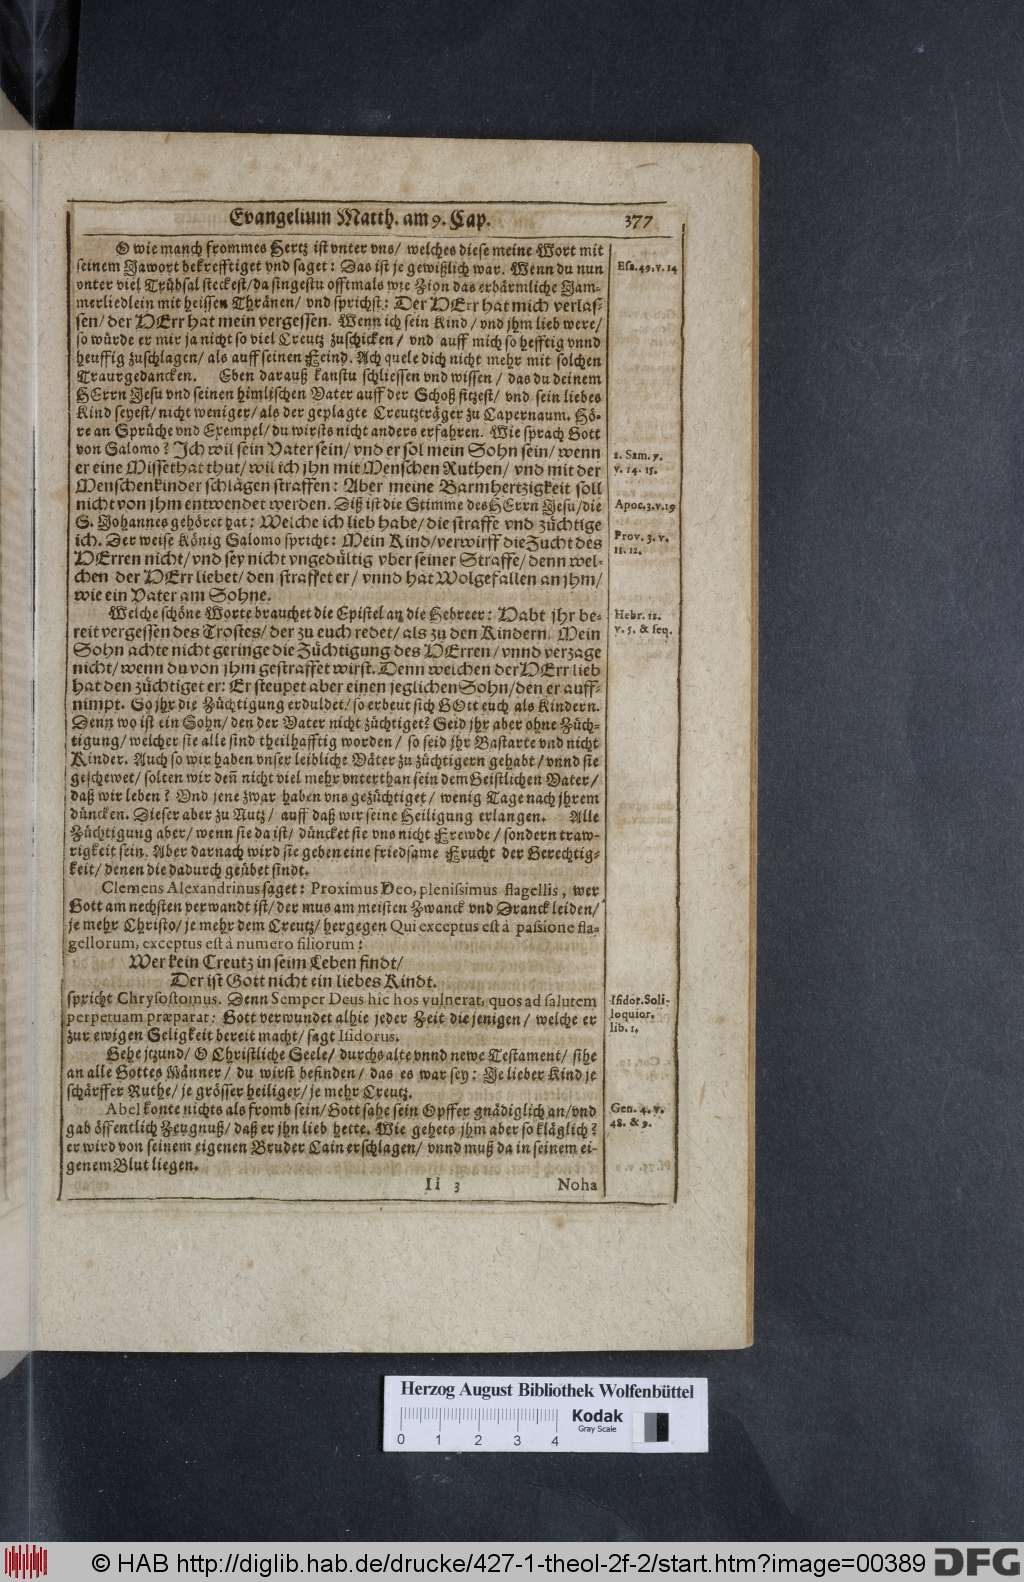 Evangelium Matth. am 9. Cap. 377
O wie manch frommes Hertz ist vnter vns/ welches diese meine Wort mit
seinem Jawort bekrefftiget vnd saget: Das ist je gewißlich war. Wenn du nun
Esa. 49. v. 14
vnter viel Trübsal steckest/ da singestu offtmals wie Zion das erbärmliche Jam-
merliedlein mit heissen Thränen/ vnd sprichst: Der HErr hat mich verlas-
sen/ der HErr hat mein vergessen. Wenn ich sein Kind/ vnd jhm lieb were/
so würde er mir ja nicht so viel Creutz zuschicken/ vnd auff mich so hefftig vnnd
heuffig zuschlagen/ als auff seinen Feind. Ach quele dich nicht mehr mit solchen
Traurgedancken. Eben darauß kanstu schliessen vnd wissen/ das du deinem
HErrn Jesu vnd seinen himlischen Vater auff der Schoß sitzest/ vnd sein liebes
Kind seyest/ nicht weniger/ als der geplagte Creutzträger zu Capernaum. Hö-
re an Sprüche vnd Exempel/ du wirsts nicht anders erfahren. Wie sprach Gott
von Salomo? Ich wil sein Vater sein/ vnd er sol mein Sohn sein/ wenn
2. Sam. 7.
er eine Missethat thut/ wil ich jhn mit Menschen Ruthen/ vnd mit der
v. 14. 15.
Menschenkinder schlägen straffen: Aber meine Barmhertzigkeit soll
nicht von jhm entwendet werden. Diß ist die Stimme des HErrn Jesu/ die
Apoc. 3. v. 19
S. Johannes gehöret hat: Welche ich lieb habe/ die straffe vnd züchtige
ich. Der weise König Salomo spricht: Mein Kind/ verwirff die Zucht des
Prov. 3. v.
11. 12.
HErren nicht/ vnd sey nicht vngedültig vber seiner Straffe/ denn wel-
chen der HErr liebet/ den straffet er/ vnnd hat Wolgefallen an jhm/
wie ein Vater am Sohne.
Welche schöne Worte brauchet die Epistel an die Hebreer: Habt jhr be-
Hebr. 12.
reit vergessen des Trostes/ der zu euch redet/ als zu den Kindern. Mein
v. 5. & seq.
Sohn achte nicht geringe die Züchtigung des HErren/ vnnd verzage
nicht/ wenn du von jhm gestraffet wirst. Denn welchen der HErr lieb
hat den züchtiget er: Er steupet aber einen jeglichen Sohn/ den er auff-
nimpt. So jhr die Züchtigung erduldet/ so erbeut sich GOtt euch als Kindern.
Denn wo ist ein Sohn/ den der Vater nicht züchtiget? Seid jhr aber ohne Züch-
tigung/ welcher sie alle sind theilhafftig worden/ so seid jhr Bastarte vnd nicht
Kinder. Auch so wir haben vnser leibliche Väter zu züchtigern gehabt/ vnnd sie
geschewet/ solten wir deñ nicht viel mehr vnterthan sein dem Geistlichen Vater/
daß wir leben? Vnd jene zwar haben vns gezüchtiget/ wenig Tage nach jhrem
düncken. Dieser aber zu Nutz/ auff daß wir seine Heiligung erlangen. Alle
Züchtigung aber/ wenn sie da ist/ düncket sie vns nicht Frewde/ sondern traw-
rigkeit sein. Aber darnach wird sie geben eine friedsame Frucht der Gerechtig-
keit/ denen die dadurch geübet sindt.
Clemens Alexandrinus saget: Proximus Deo, plenissimus flagellis, wer
Gott am nechsten verwandt ist/ der mus am meisten Zwanck vnd Dranck leiden/
je mehr Christo/ je mehr dem Creutz/ hergegen Qui exceptus est à passione fla-
gellorum, exceptus est à numero filiorum:
Wer kein Creutz in seim Leben findt/
Der ist Gott nicht ein liebes Kindt.
spricht Chrysostomus. Denn Semper Deus hic hos vulnerat, quos ad salutem
Isidor. Soli-
perpetuam præparat: Gott verwundet alhie jeder Zeit die jenigen/ welche er
loquior.
zur ewigen Seligkeit bereit macht/ sagt Isidorus.
lib. 1.
Gehe jtzund/ O Christliche Seele/ durchs alte vnnd newe Testament/ sihe
an alle Gottes Männer/ du wirst befinden/ das es war sey: Je lieber Kind je
schärffer Ruthe/ je grösser heiliger/ je mehr Creutz.
Abel konte nichts als fromb sein/ Gott sahe sein Opffer gnädiglich an/ vnd
Gen. 4. v.
gab öffentlich Zeugnuß/ daß er jhn lieb hette. Wie gehets jhm aber so kläglich?
48. & 9.
er wird von seinem eigenen Bruder Cain erschlagen/ vnnd muß da in seinem ei-
genem Blut liegen.
Ii 3 Noha
Herzog August Bibliothek Wolfenbüttel
Kodak
Gray Scale
0 1 2 3 4
© HAB http://diglib.hab.de/drucke/427-1-theol-2f-2/start.htm?image=00389 DFG